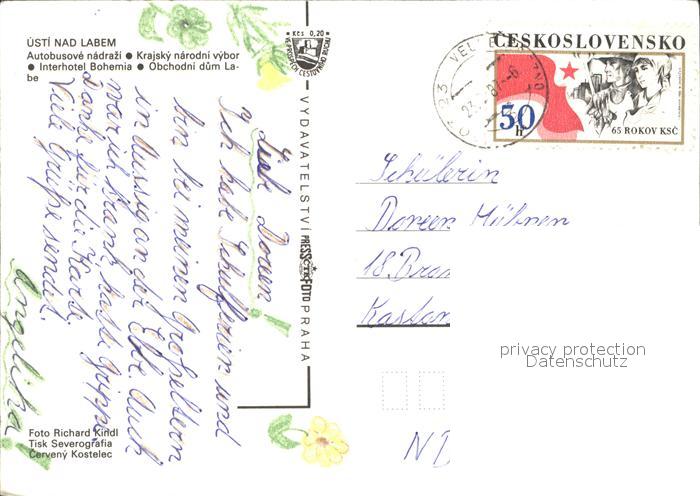 ÚSTÍ NAD LABEM
Autobusové nádraží ● Krajský národní výbor
● Interhotel Bohemia ● Obchodní dům La-
be
Lieb Doreen!
Ich habe Schulferien und
bin bei meinen Großeltern
in Aussig an der Elbe. Auch
war ich krank hatte Grippe.
Danke für die Karte.
Viele Grüße sendet
Angelika!
Foto Richard Kindl
Tisk Severografia
Červený Kostelec
Kčs 0,20
VYDAVATELSTVÍ PRESSFOTO PRAHA
ČESKOSLOVENSKO
50 h
65 ROKOV KSČ
Schülerin
Doreen Hübner
18 Bra
Kastan
privacy protection
Datenschutz